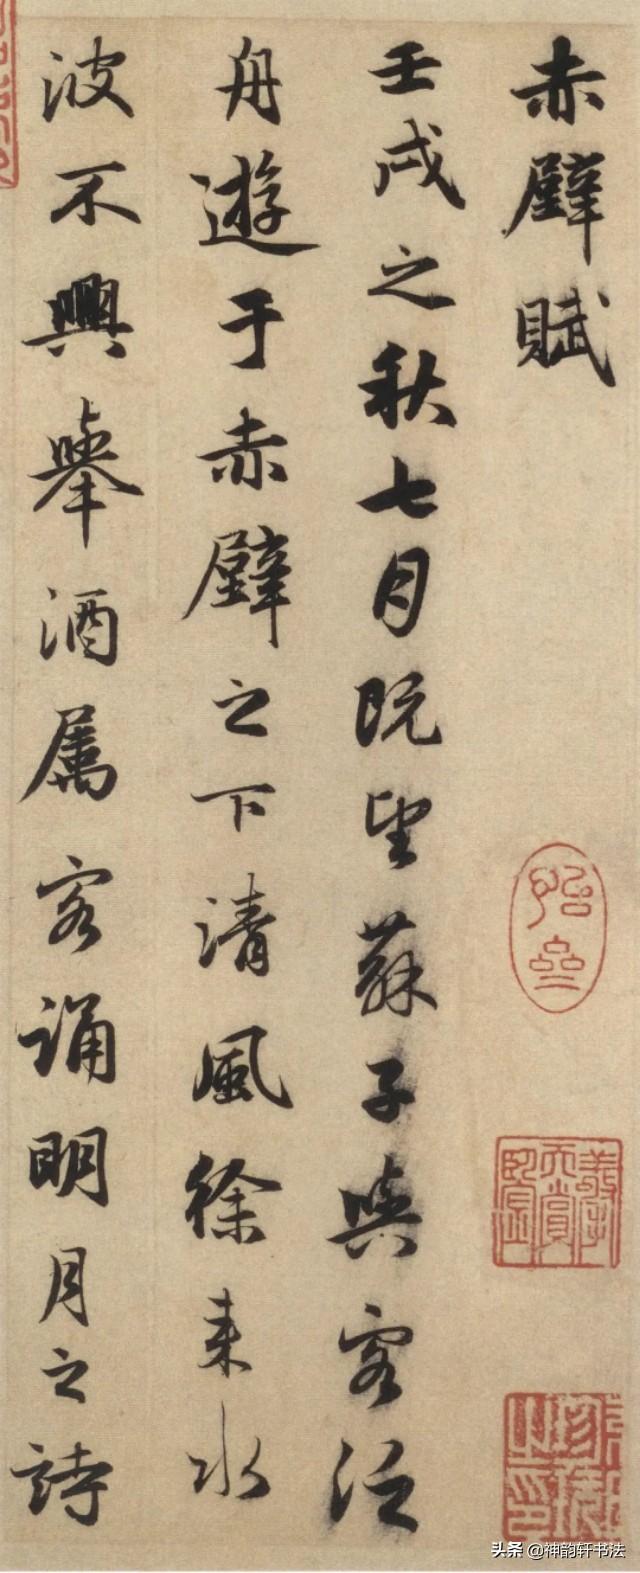 赤壁賦
壬戌之秋七月既望蘇子與客泛
舟遊于赤壁之下清風徐来水
波不興舉酒属客誦明月之詩
头条 @神韵轩书法